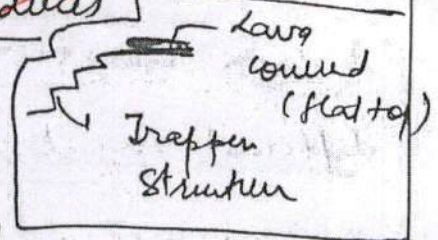 Lava
covered
(flat top)
Trappen
Structure